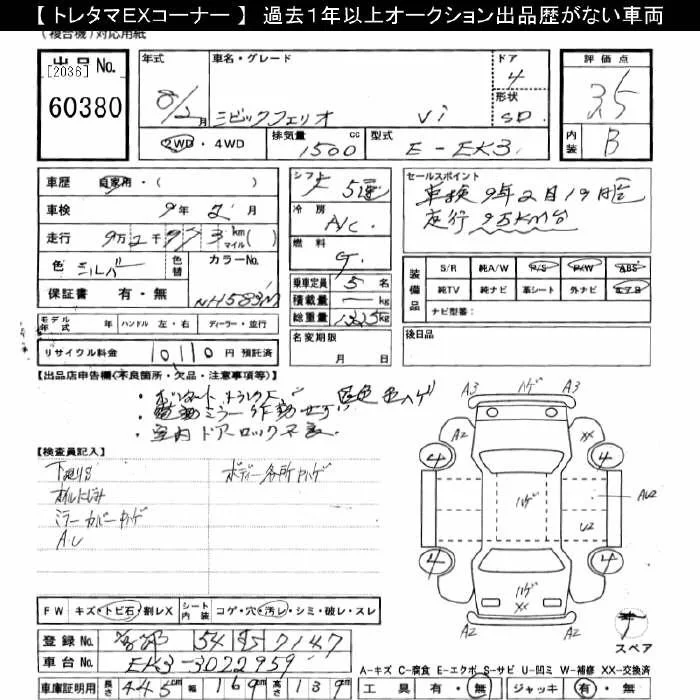 【 トレタマEXコーナー 】 過去1年以上オークション出品歴がない車両
(複合機)対応用紙
出品 No.
[2036]
60380
年式
8/2月
車名・グレード
シビックフェリオ Vi
ドア
4
形状
SD
評価点
3.5
内装
B
2WD ・ 4WD
排気量
1500 cc
型式
E - EK3
車歴 自家用・( )
車検 9年 2月
走行 9万 2千 973 km マイル ( )
色 シルバー
色替
カラーNo.
NH583M
保証書 有・無
シフト
F 5速
冷房
A/C
燃料
G
乗車定員 5 名
積載量 ー kg
総重量 1325 kg
名変期限
月 日
セールスポイント
車検 9年2月19日迄
走行 93KM台
装備品
S/R 純A/W P/S P/W ABS
純TV 純ナビ 革シート 外ナビ エアB
ナビ型番:
後日品
モデル年式 年 ハンドル 左・右 ディーラー・並行
リサイクル料金 10110 円 預託済
【出品店申告欄(不良箇所・欠品・注意事項等)】
・ボンネット トランク
色ハゲ
・電動ミラー作動せず
・室内 ドアロック不良
【検査員記入】
下廻りS
オイルにじみ
ミラーカバーハゲ
AU
ボディー各所ハゲ
A3 ハゲ A3
A2 XX
4 4
ハゲ
AU2
U2
4 4
ハゲ
XX
A2
スペア
FW キズ・トビ石・割レX
シート内装 コゲ・穴・汚レ・シミ・破レ・スレ
登録 No. 54 95 7147
車台 No. EK3-3022959
車庫証明用 長さ 445 cm 幅 169 cm 高さ 139 cm
A-キズ C-腐食 E-エクボ S-サビ U-凹ミ W-補修 XX-交換済
工具 有・無 ジャッキ 有・無